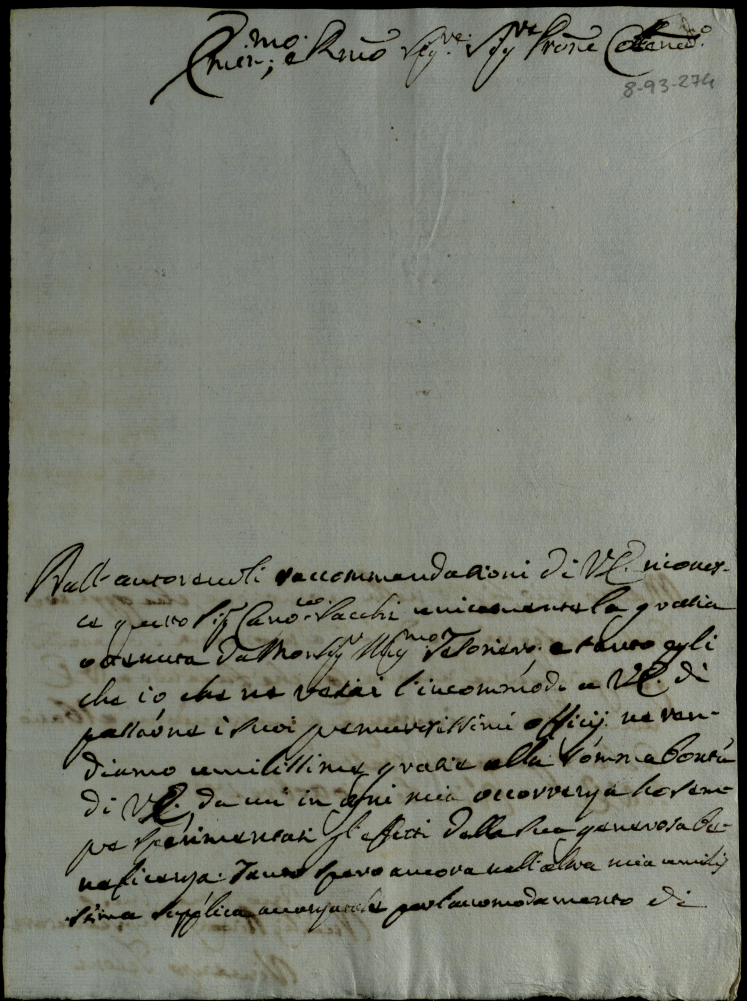 Emin.mo e Rmo Sig.re Sig.re Prone Colendmo
8-93-274
Dall'autorevoli raccommendationi di V.E. ricones-
ce questo Sig. Cano.co Sacchi unicamente la gratia
ottenuta da Monsig.r Ill.mo Tesoriero, e tanto egli
che io che ne recai l'incommodo a V.E. di
passarne i suoi premurosissimi officij, ne ren-
diamo umilissime gratie alla somma bontà
di V.E., da cui in ogni mia occorrenza ho sem-
pre sperimentati gl'effetti della sua generosa be-
neficenza. Tanto spero ancora nell'altra mia umilis-
sima supplica avanzatale per l'accomodamento di